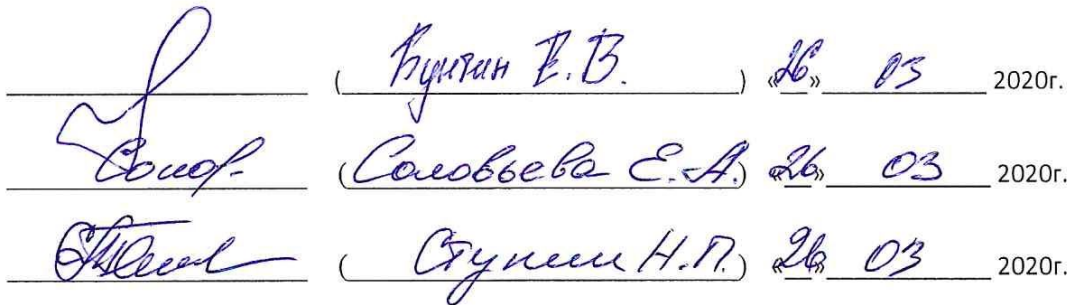 ( Бунтин Е.В. ) «26» 03 2020г.
Солов. (Соловьева Е.А.) «26» 03 2020г.
( Ступин Н.П.) «26» 03 2020г.